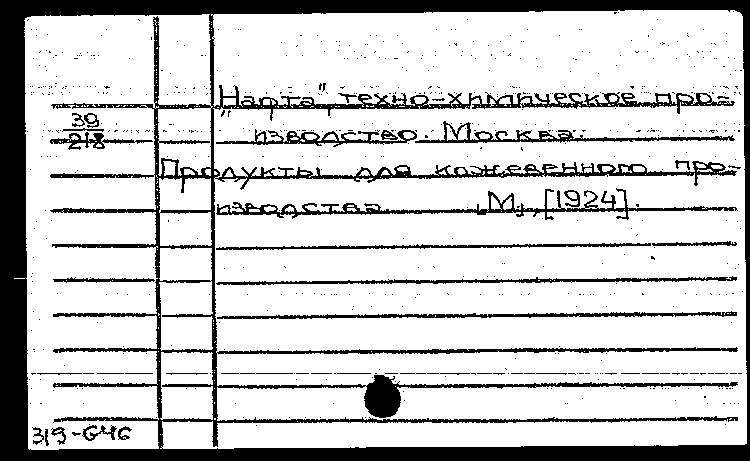 „Нафта", техно-химическое про-
39
218
изводство. Москва.
Продукты для кожевенного про-
изводства [М], [1924].
319-646